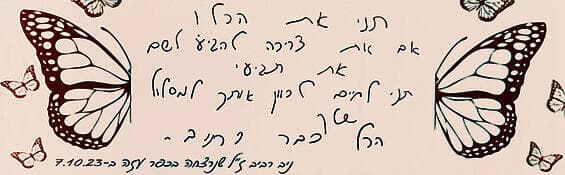 תני את הכל ו
אם את צריכה להגיע לשם
את תגיעי
תני לחיים לכוון אותך למסלול
שלך
הכל כבר רשום -
ניב רביב ז"ל שנרצחה בכפר עזה ב-7.10.23